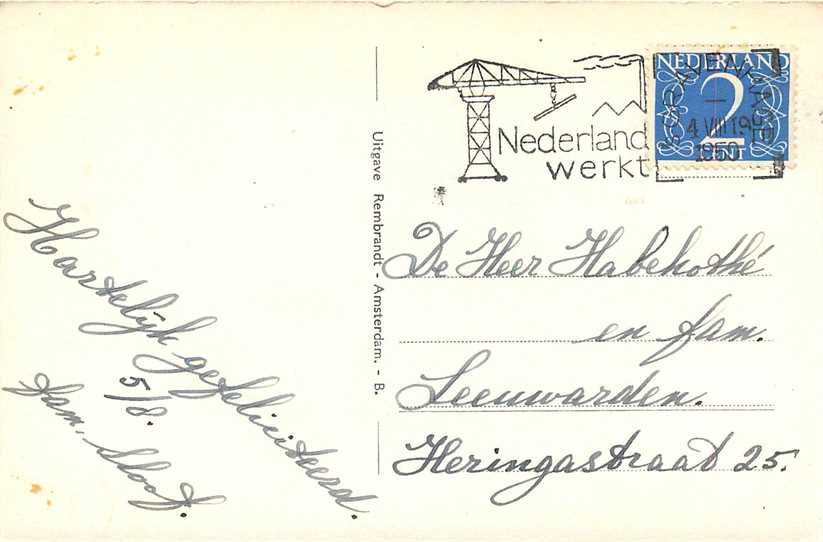 Nederland
werkt
NEDERLAND
2
CENT
4 VIII 19
1950
Uitgave Rembrandt - Amsterdam. - B.
De Heer Habekothé
en fam.
Leeuwarden.
Heringastraat 25.
Hartelijk gefeliciteerd.
5/8.
fam. Sloof.